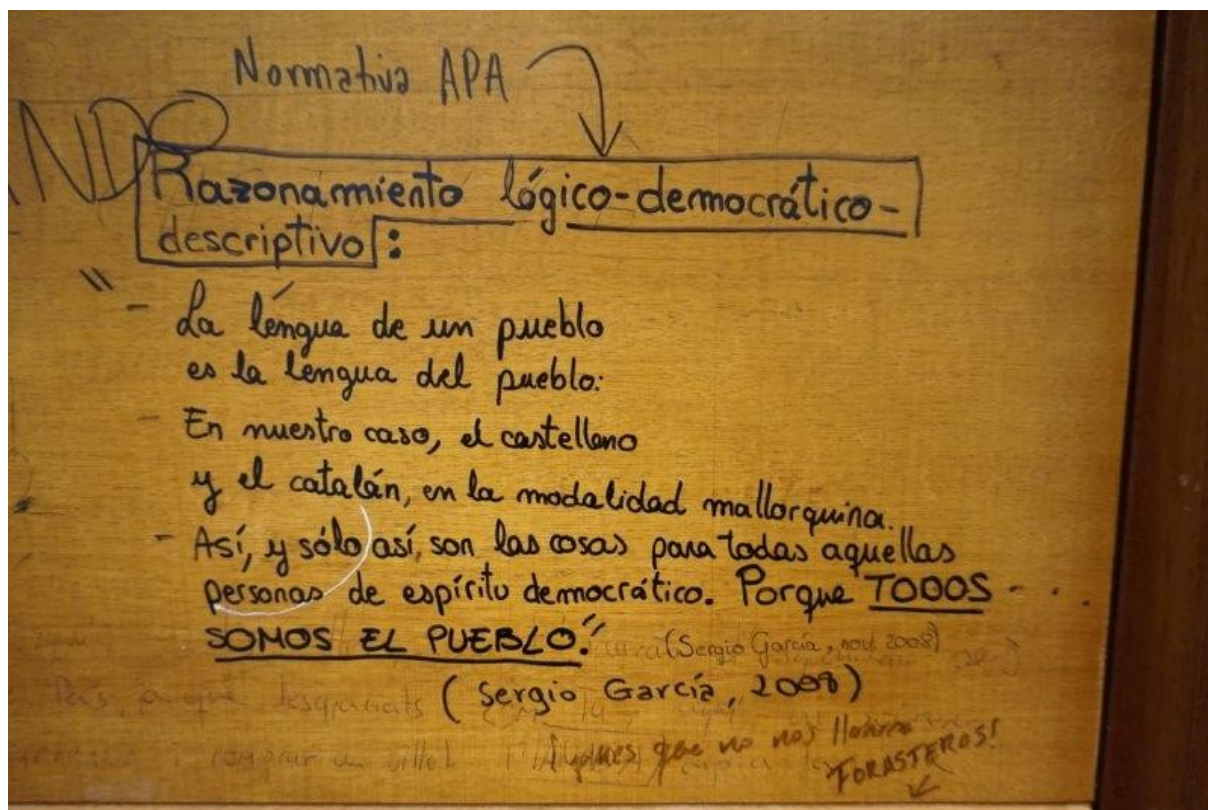 Normativa APA
AND
Razonamiento lógico-democrático-
descriptivo:
"- La lengua de un pueblo
es la lengua del pueblo:
- En nuestro caso, el castellano
y el catalán, en la modalidad mallorquina.
- Así, y sólo así, son las cosas para todas aquellas
personas de espíritu democrático. Porque TODOS - . .
SOMOS EL PUEBLO."
(Sergio García, nov. 2008)
(Sergio García, 2008)
pues que no nos llamen
FORASTEROS!